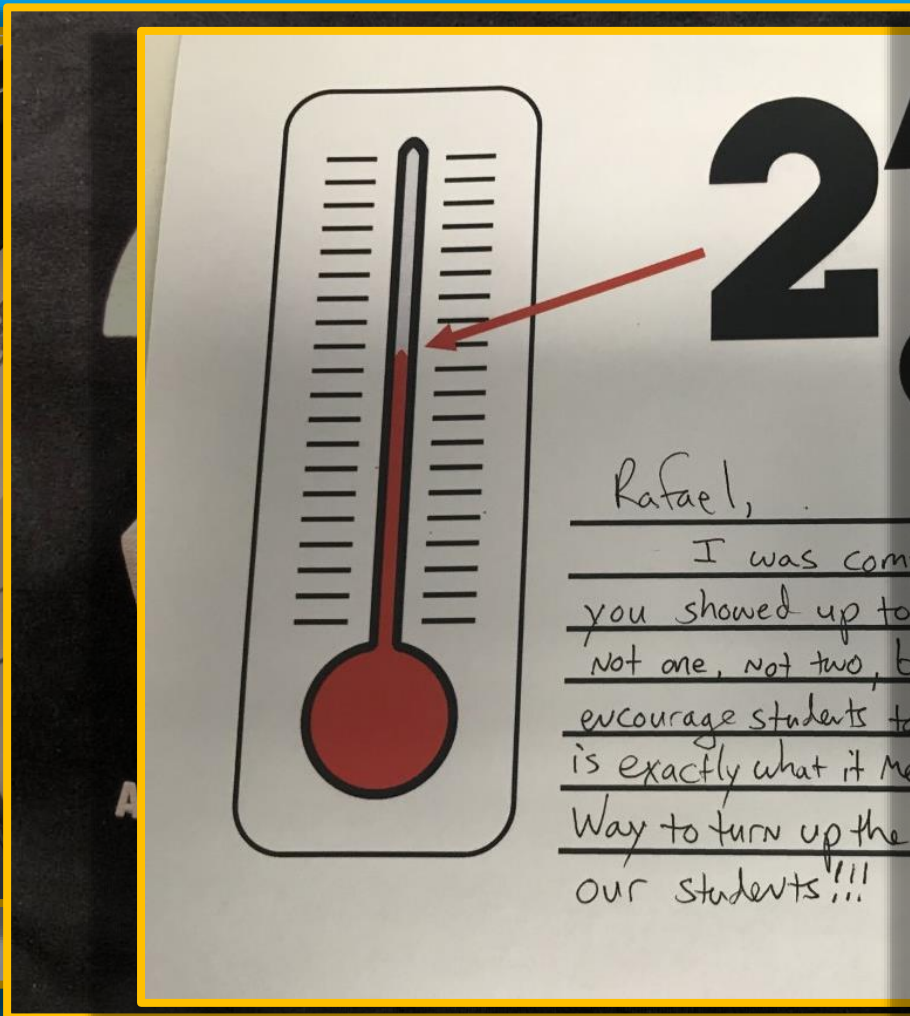 2
Rafael,
I was com
you showed up to
Not one, Not two,
encourage students to
is exactly what it
Way to turn up the
our students!!!
A